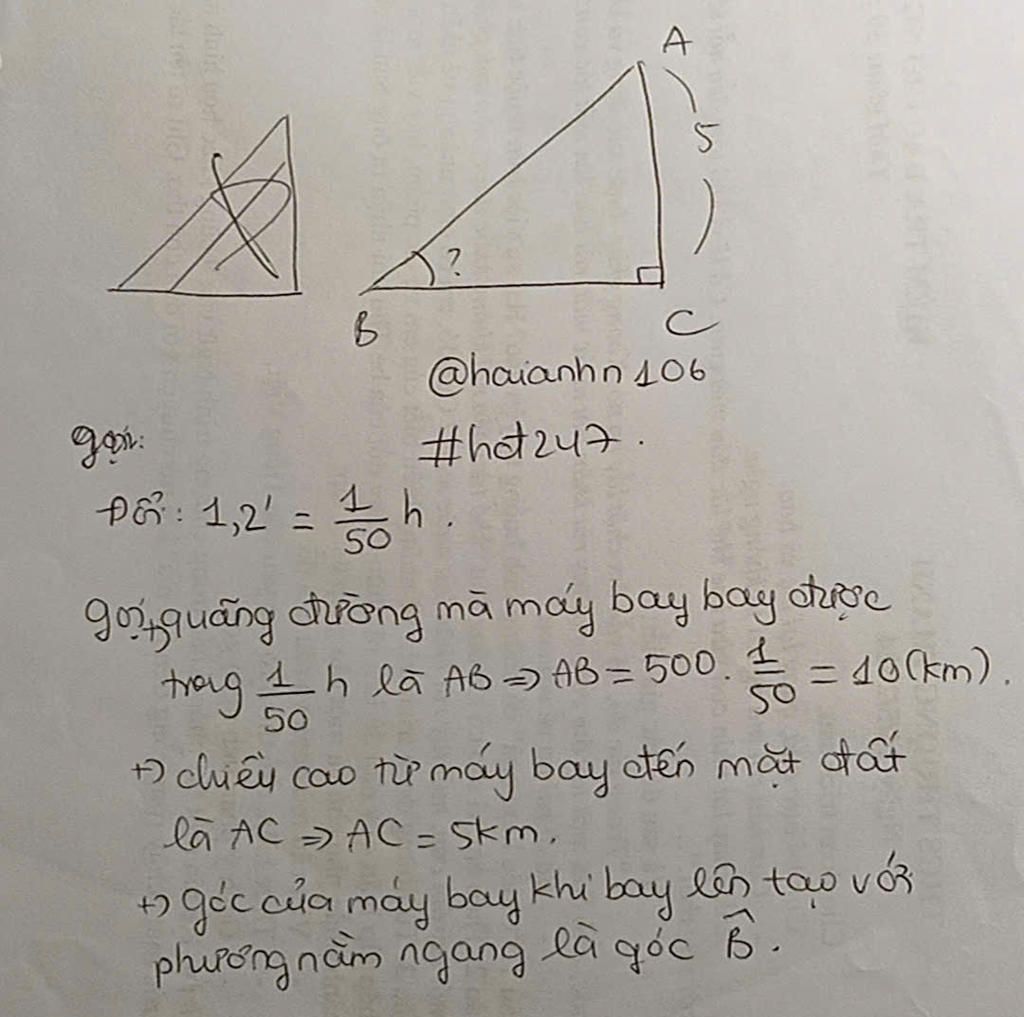 A
5
?
B
C
@haianhn106
gọi:
#hot247.
Đổi: 1,2' = 1/50 h.
gọi +) quãng đường mà máy bay bay được
trong 1/50 h là AB => AB = 500. 1/50 = 10 (km).
+) chiều cao từ máy bay đến mặt đất
là AC => AC = 5km.
+) góc của máy bay khi bay lên tạo với
phương nằm ngang là góc B̂.